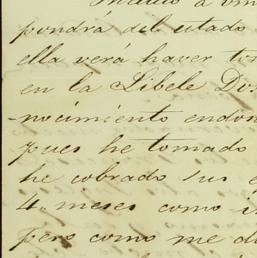 Incluo a
pondrá del estado
ella verá haver
en la Libele
nocimiento
pues he tomado
he cobrado sus
4. meses como
pero como me